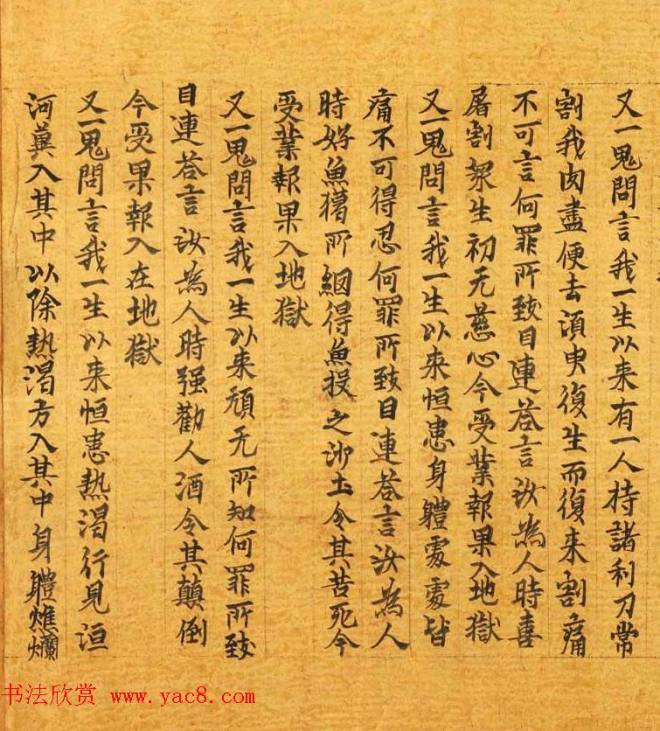 又一鬼問言我一生以来有一人持諸利刀常
割我肉盡便去須臾復生而復来割痛
不可言何罪所致目連荅言汝為人時喜
屠割衆生初无慈心今受業報果入地獄
又一鬼問言我一生以来恒患身體處處皆
痛不可得忍何罪所致目連荅言汝為人
時好魚獦所網得魚投之沙土令其苦死今
受業報果入地獄
又一鬼問言我一生以来頑无所知何罪所致
目連荅言汝為人時强勸人酒令其顛倒
今受果報入在地獄
又一鬼問言我一生以来恒患熱渴行見洹
河兾入其中以除熱渴方入其中身體燋爛
书法欣赏 www.yac8.com